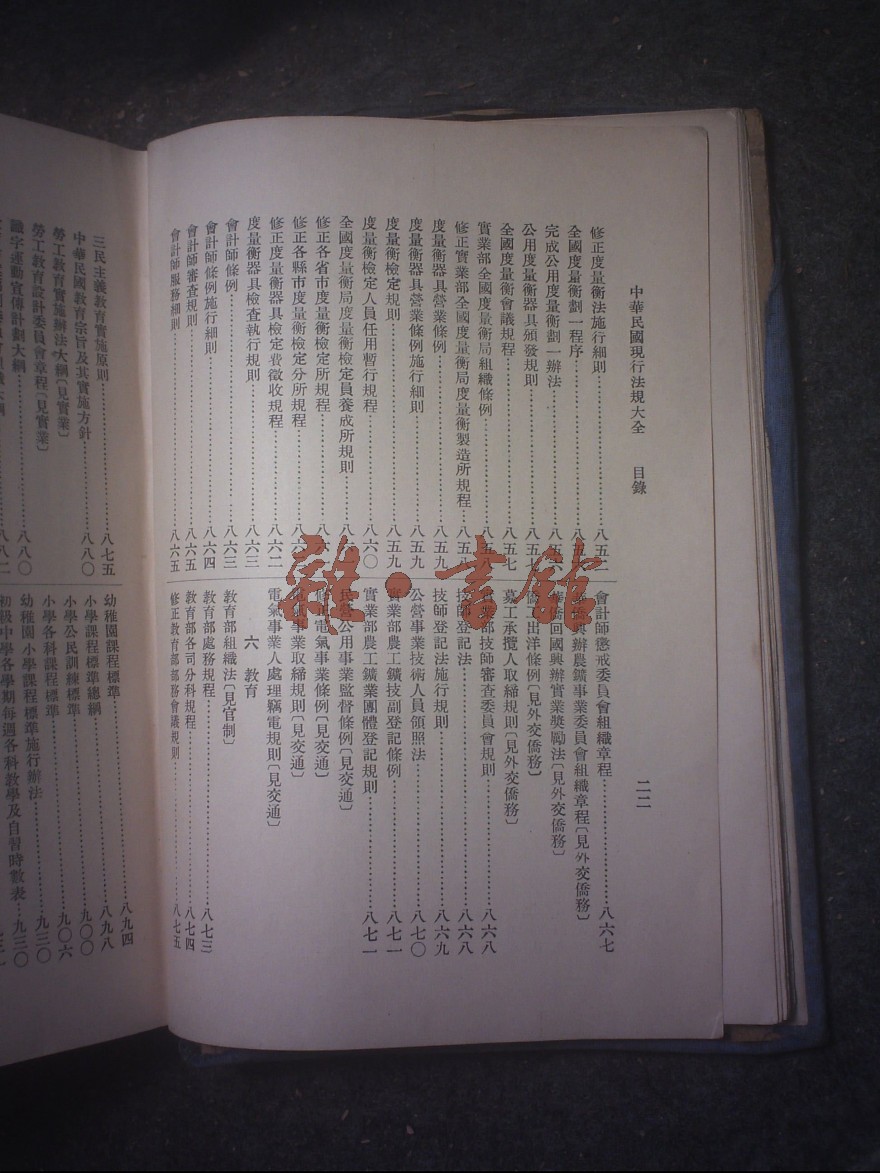 中華民國現行法規大全　目錄
二二
修正度量衡法施行細則……八五二
全國度量衡劃一程序……八五
完成公用度量衡劃一辦法……八五
公用度量衡器具頒發規則……八五七
全國度量衡會議規程……八五七
實業部全國度量衡局組織條例……八五八
修正實業部全國度量衡局度量衡製造所規程……八五
度量衡器具營業條例……八五九
度量衡器具營業條例施行細則……八五九
度量衡檢定規則……八五九
度量衡檢定人員任用暫行規程……八六〇
全國度量衡局度量衡檢定員養成所規則……八六
修正各省市度量衡檢定所規程……八六
修正各縣市度量衡檢定分所規程……八六
修正度量衡器具檢定費徵收規程……八六二
度量衡器具檢查執行規則……八六三
會計師條例……八六三
會計師條例施行細則……八六四
會計師審查規則……八六五
會計師服務細則……八六五
會計師懲戒委員會組織章程……八六七
興辦農鑛事業委員會組織章程〔見外交僑務〕
華僑回國興辦實業獎勵法〔見外交僑務〕
工出洋條例〔見外交僑務〕
募工承攬人取締規則〔見外交僑務〕
業部技師審查委員會規則……八六八
技師登記法……八六八
技師登記法施行規則……八六九
公營事業技術人員領照法……八七〇
實業部農工鑛技副登記條例……八七一
實業部農工鑛業團體登記規則……八七一
民營公用事業監督條例〔見交通〕
修正電氣事業條例〔見交通〕
電氣事業取締規則〔見交通〕
電氣事業人處理竊電規則〔見交通〕
六　教育
教育部組織法〔見官制〕
教育部處務規程……八七三
教育部各司分科規程……八七四
修正教育部部務會議規則……八七五
三民主義教育實施原則……八七五
中華民國教育宗旨及其實施方針……八八〇
勞工教育實施辦法大綱〔見實業〕
勞工教育設計委員會章程〔見實業〕
識字運動宣傳計劃大綱……八八〇
幼稚園課程標準……八九四
小學課程標準總綱……八九八
小學公民訓練標準……九〇〇
小學各科課程標準……九〇六
幼稚園小學課程標準施行辦法……九三〇
初級中學各學期每週各科教學及自習時數表……九三〇
雜·書館